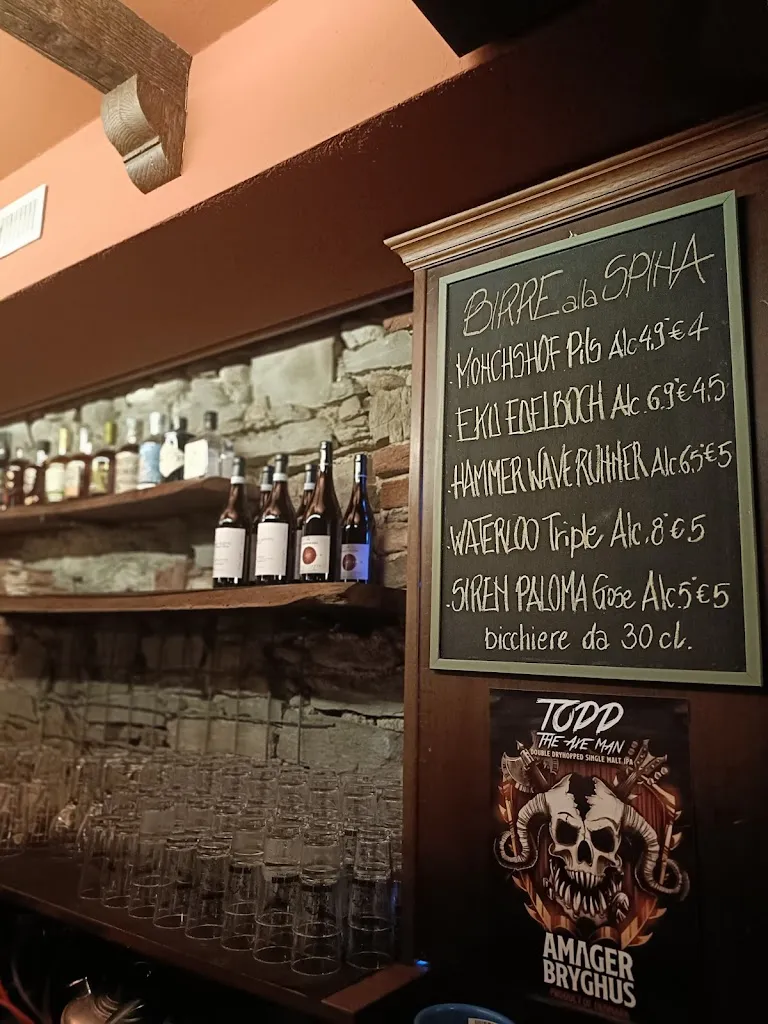 BIRRE alla SPINA
MONCHSHOF Pils Alc 4,9° €4
EKU EDELBOCH Alc. 6.9° €4.5
HAMMER WAVE RUNNER Alc.6.5° €5
WATERLOO Triple Alc. 8° €5
SIREN PALOMA Gose Alc 5° €5
bicchiere da 30 cl.
TODD
THE AXE MAN
DOUBLE DRYHOPPED SINGLE MALT IPA
AMAGER
BRYGHUS
PRODUCT OF DENMARK